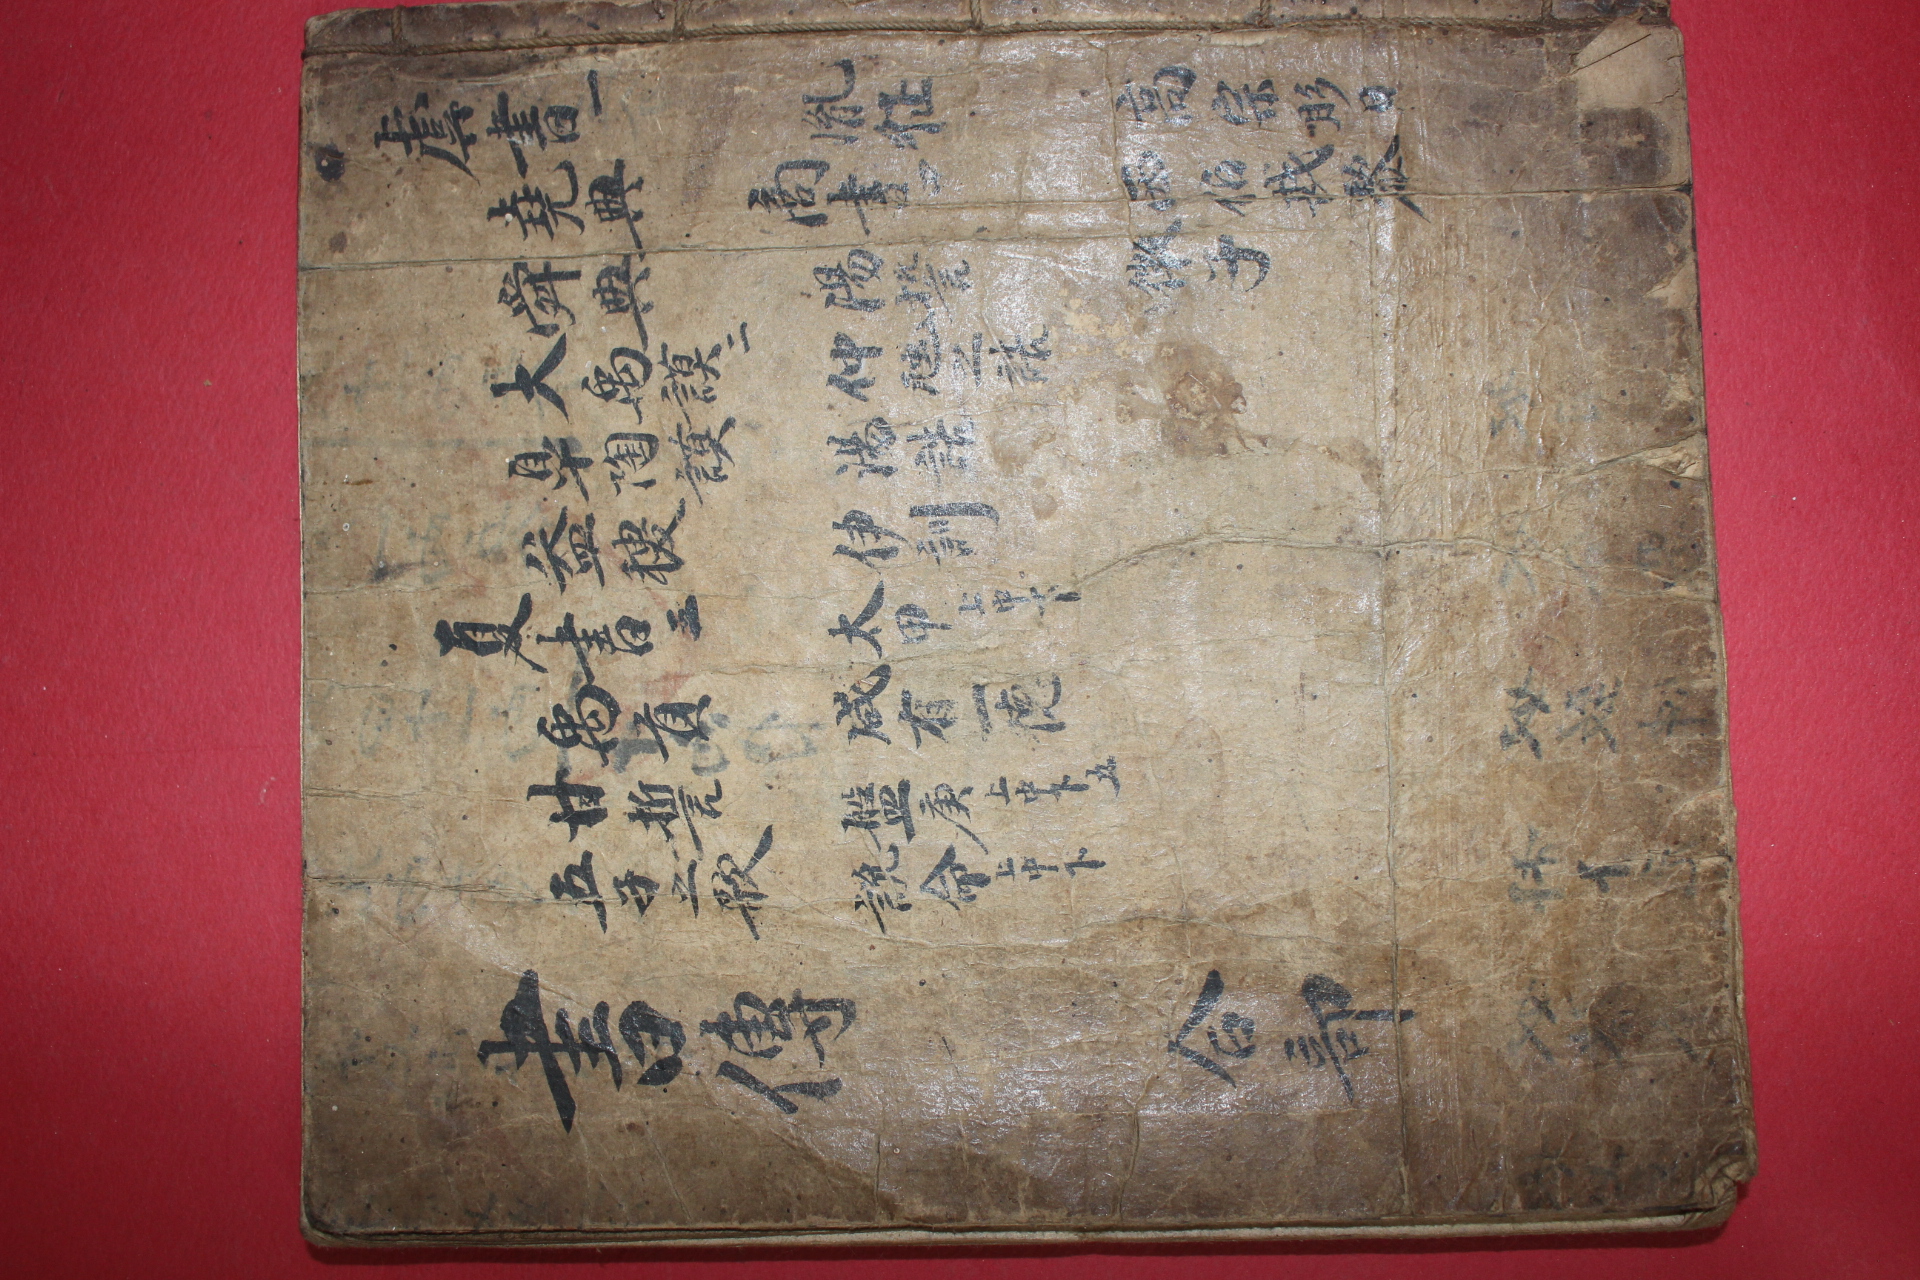 虞書一
堯典
舜典
大禹謨二
皐陶謨
益稷
夏書三
禹貢
甘誓
五子之歌
胤征
商書四
湯誓
仲虺之誥
湯誥
伊訓
太甲上中下
咸有一德
盤庚上中下五
說命上中下
高宗肜日
西伯戡黎
微子
書傳
合部